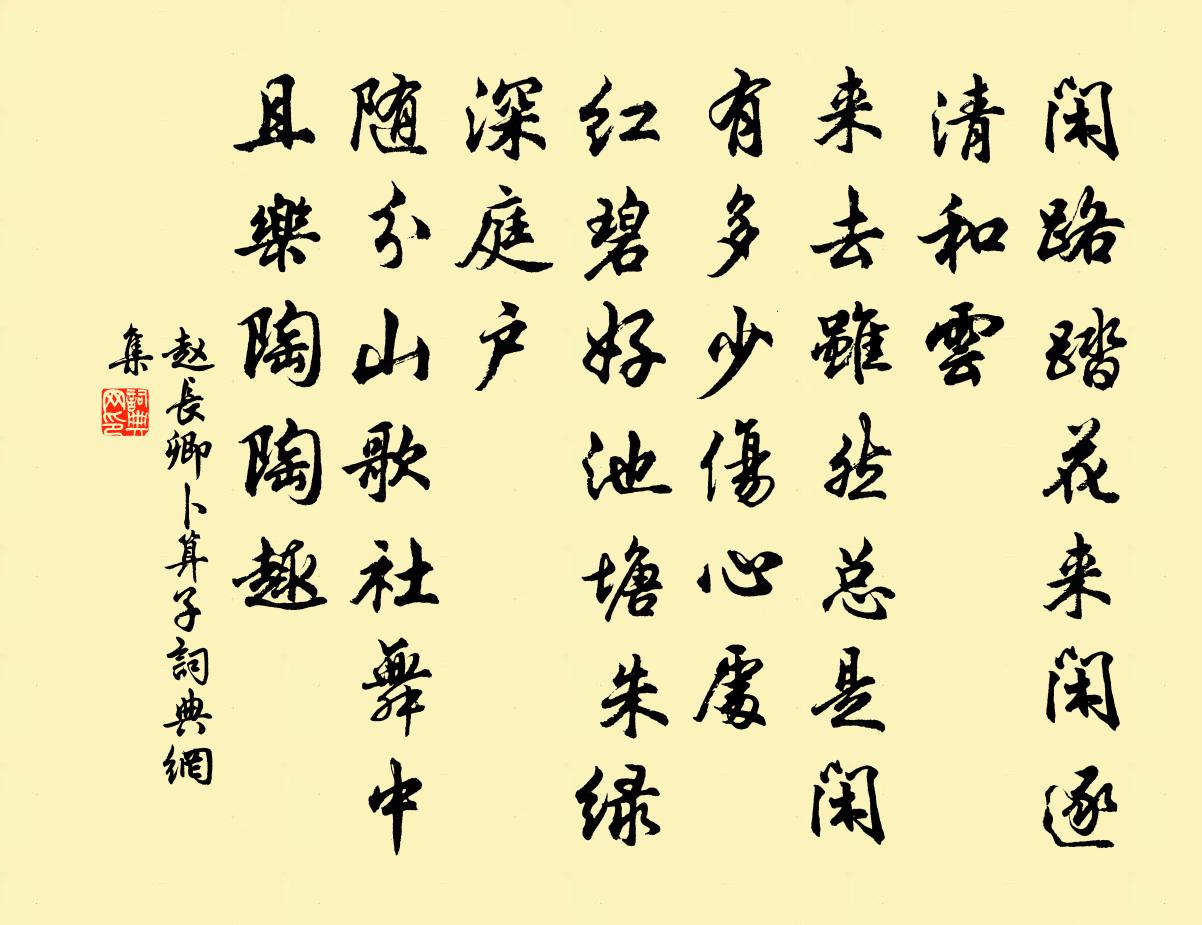 闲路踏花来闲逐
清和雲
来去雖然总是闲
有多少傷心處
红碧好池塘朱绿
深庭户
随分山歌社舞中
且樂陶陶趣
赵長卿卜算子詞典網
集
詞典网印